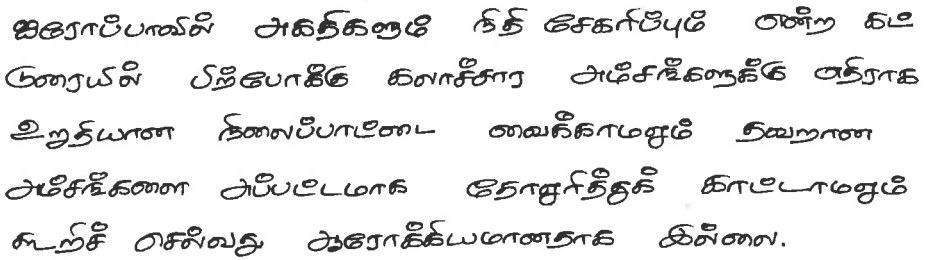 ஐரோப்பாவில் அகதிகளும் நிதி சேகரிப்பும் என்ற கட்
டுரையில் பிற்போக்கு கலாச்சார அம்சங்களுக்கு எதிராக
உறுதியான நிலைப்பாட்டை வைக்காமலும் தவறான
அம்சங்களை அப்பட்டமாக தோலுரித்துக் காட்டாமலும்
கூறிச் செல்வது ஆரோக்கியமானதாக இல்லை.